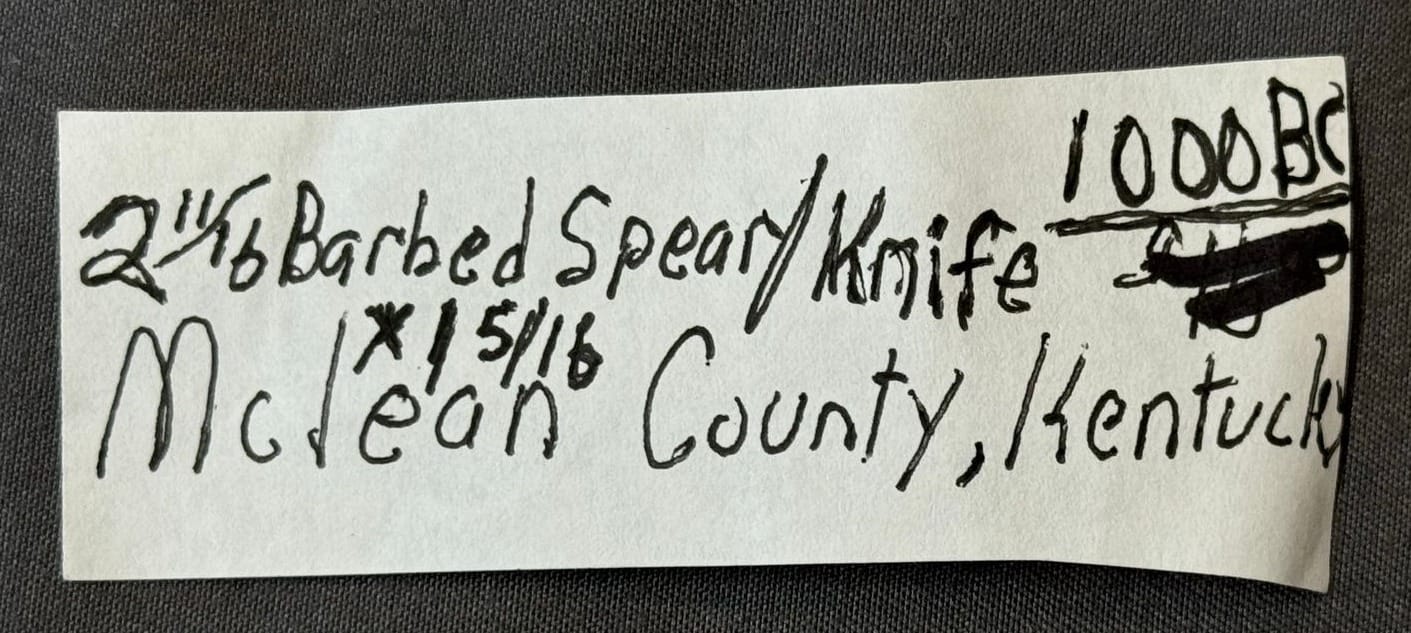 1000BC
2 11/16 Barbed Spear/Knife
x 1 5/16
McLean County, Kentucky